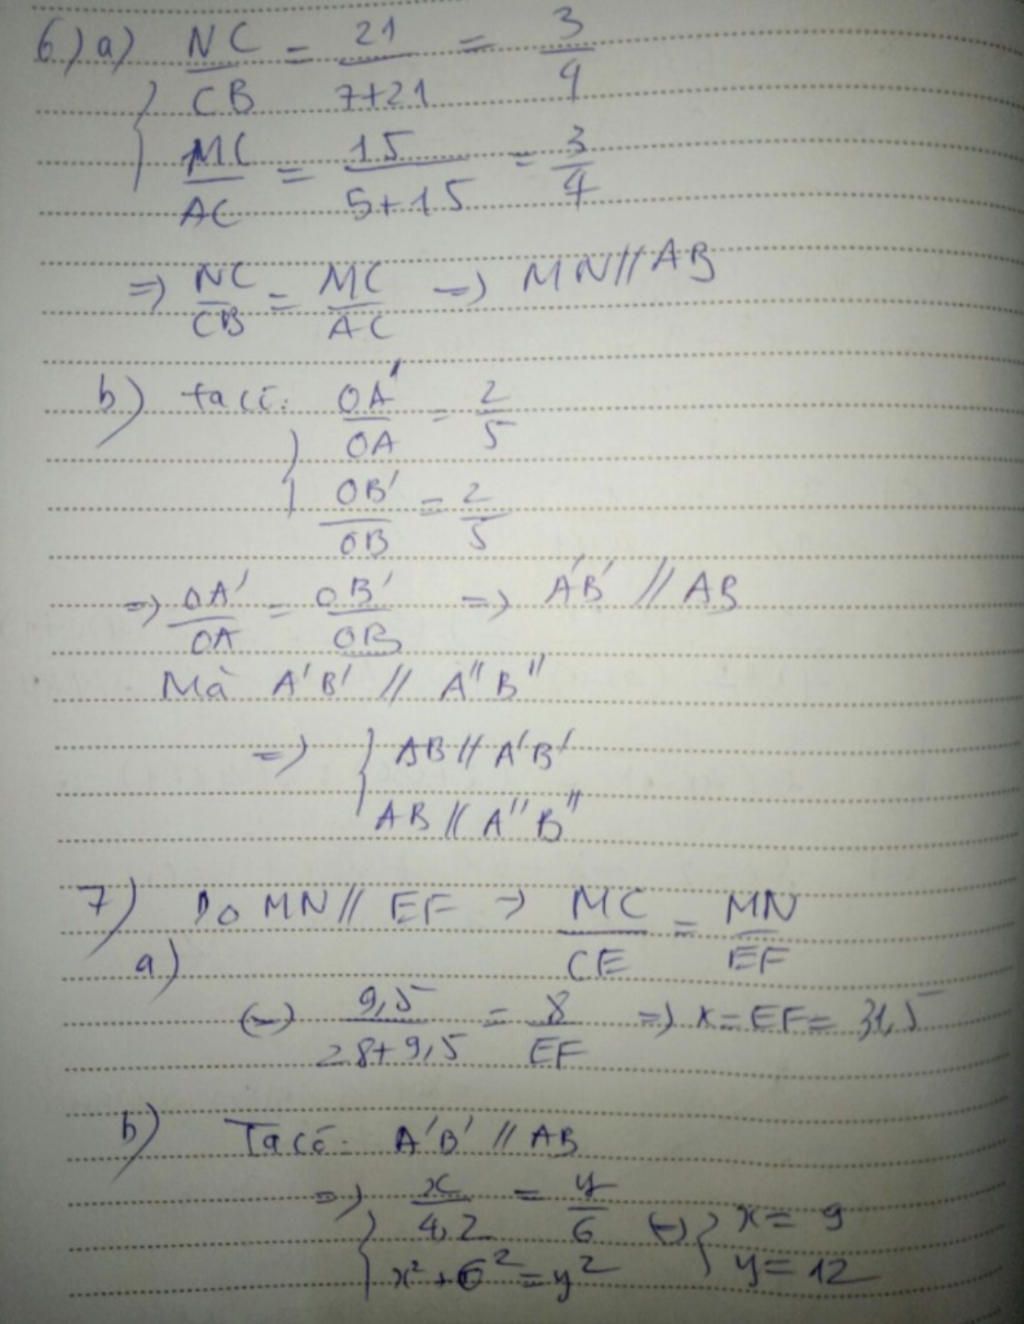 6) a) NC/CB = 21/7+21 = 3/4
MC/AC = 15/5+15 = 3/4
=> NC/CB = MC/AC => MN//AB
b) ta có: OA'/OA = 2/5
OB'/OB = 2/5
=> OA'/OA = OB'/OB => A'B' // AB
Mà A'B' // A"B"
=> { AB // A'B'
AB // A"B"
7) Do MN // EF -> MC/CE = MN/EF
a)
(-) 9,5/28+9,5 = 8/EF => x = EF = 31,5
b) Ta có: A'B' // AB
=> { x/4,2 = y/6 (-) { x = 9
x² + 6² = y² y = 12